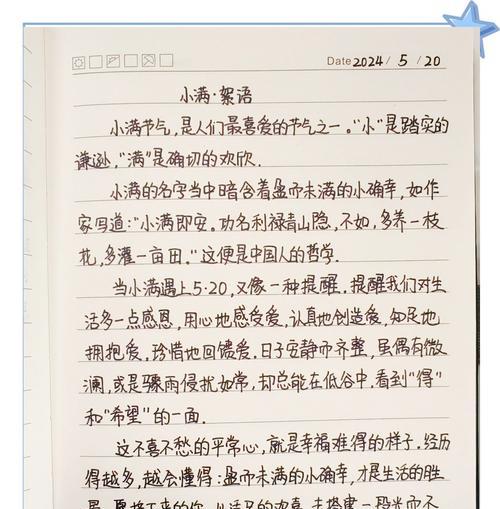 Date 2024 / 5 / 20
小满·絮语
小满节气，是人们最喜爱的节气之一。"小"是踏实的
谦逊，"满"是确切的欢欣.
小满的名字当中暗含着盈而未满的小确幸，如作
家写道："小满即安。功名利禄青山隐，不如，多养一枝
花，多灌一亩田."这便是中国人的哲学.
当小满遇上5·20，又像一种提醒，提醒我们对生
活多一点感恩，用心地感受爱，认真地创造爱，知足地
拥抱爱，珍惜地回馈爱。日子安静而齐整，虽偶有微
澜，或是骤雨侵扰如常，却总能在低谷中，看到"得"
和"希望"的一面.
这不喜不愁的平常心，就是幸福难得的样子。经历
得越多，越会懂得：盈而未满的小确幸，才是生活的胜